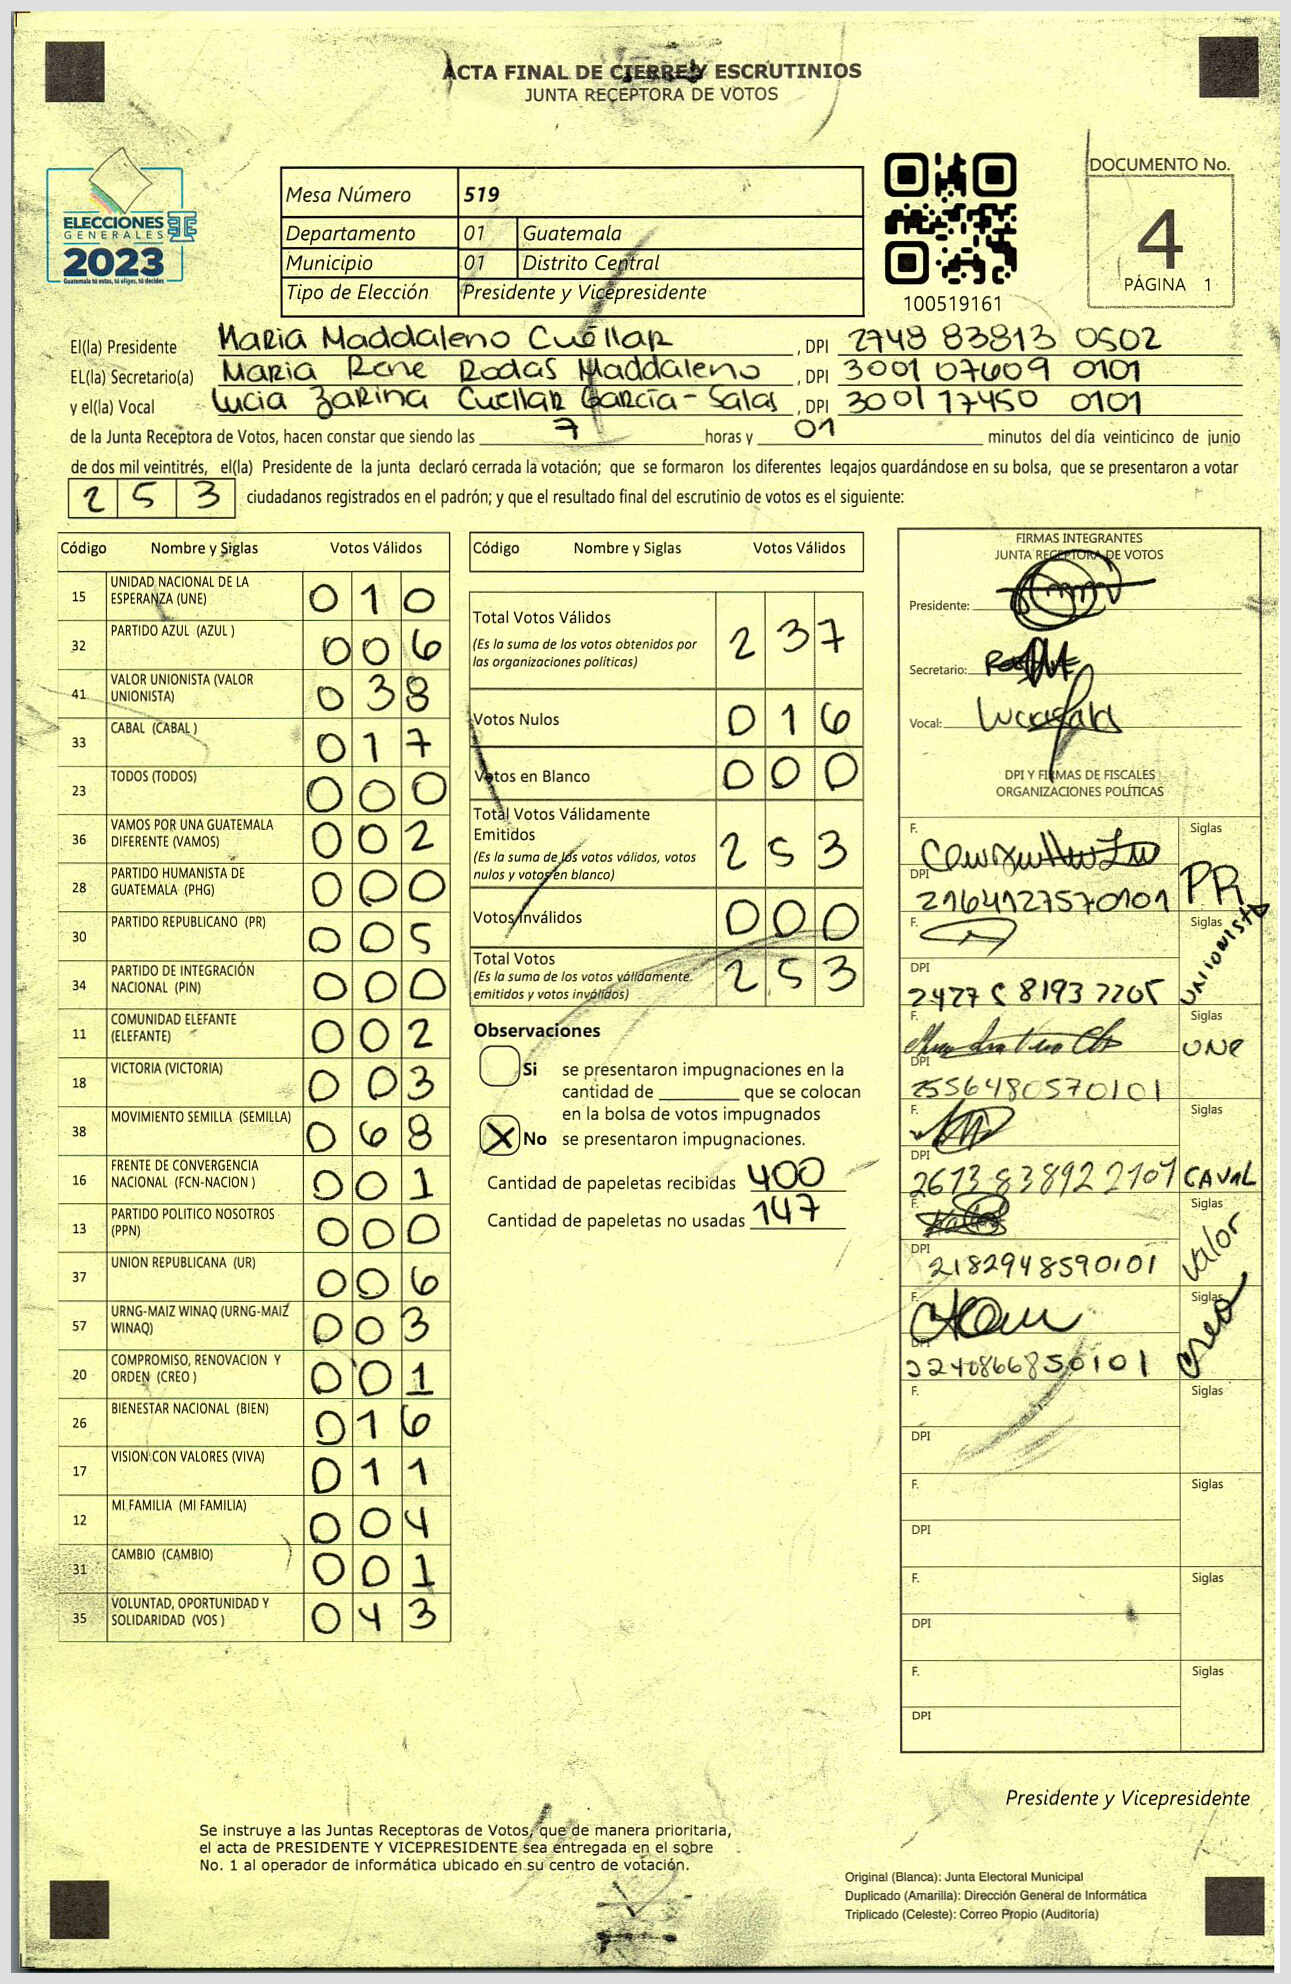 ACTA FINAL DE CIERRE Y ESCRUTINIOS
JUNTA RECEPTORA DE VOTOS
ELECCIONES
GENERALES
2023
Guatemala tú estas, tú eliges, tú decides
Mesa Número 519
Departamento 01 Guatemala
Municipio 01 Distrito Central
Tipo de Elección Presidente y Vicepresidente
100519161
DOCUMENTO No.
4
PÁGINA 1
El(la) Presidente Maria Maddaleno Cuéllar, DPI 2748 83813 0502
EL(la) Secretario(a) Maria Rene Rodas Maddaleno, DPI 3001 07609 0101
y el(la) Vocal Lucia Zarina Cuellar García-Salas, DPI 3001 17450 0101
de la Junta Receptora de Votos, hacen constar que siendo las 7 horas y 01 minutos del día veinticinco de junio
de dos mil veintitrés, el(la) Presidente de la junta declaró cerrada la votación; que se formaron los diferentes legajos guardándose en su bolsa, que se presentaron a votar
253 ciudadanos registrados en el padrón; y que el resultado final del escrutinio de votos es el siguiente:
Código Nombre y Siglas Votos Válidos
15 UNIDAD NACIONAL DE LA ESPERANZA (UNE) 010
32 PARTIDO AZUL (AZUL ) 006
41 VALOR UNIONISTA (VALOR UNIONISTA) 038
33 CABAL (CABAL ) 017
23 TODOS (TODOS) 000
36 VAMOS POR UNA GUATEMALA DIFERENTE (VAMOS) 002
28 PARTIDO HUMANISTA DE GUATEMALA (PHG) 000
30 PARTIDO REPUBLICANO (PR) 005
34 PARTIDO DE INTEGRACIÓN NACIONAL (PIN) 000
11 COMUNIDAD ELEFANTE (ELEFANTE) 002
18 VICTORIA (VICTORIA) 003
38 MOVIMIENTO SEMILLA (SEMILLA) 068
16 FRENTE DE CONVERGENCIA NACIONAL (FCN-NACION ) 001
13 PARTIDO POLITICO NOSOTROS (PPN) 000
37 UNION REPUBLICANA (UR) 006
57 URNG-MAIZ WINAQ (URNG-MAIZ WINAQ) 003
20 COMPROMISO, RENOVACION Y ORDEN (CREO ) 001
26 BIENESTAR NACIONAL (BIEN) 016
17 VISION CON VALORES (VIVA) 011
12 MI FAMILIA (MI FAMILIA) 004
31 CAMBIO (CAMBIO) 001
35 VOLUNTAD, OPORTUNIDAD Y SOLIDARIDAD (VOS ) 043
Código Nombre y Siglas Votos Válidos
Total Votos Válidos 237
(Es la suma de los votos obtenidos por
las organizaciones políticas)
Votos Nulos 016
Votos en Blanco 000
Total Votos Válidamente
Emitidos 253
(Es la suma de los votos válidos, votos
nulos y votos en blanco)
Votos Inválidos 000
Total Votos 253
(Es la suma de los votos válidamente
emitidos y votos inválidos)
Observaciones
Si se presentaron impugnaciones en la
cantidad de ________ que se colocan
en la bolsa de votos impugnados
X No se presentaron impugnaciones.
Cantidad de papeletas recibidas 400
Cantidad de papeletas no usadas 147
FIRMAS INTEGRANTES
JUNTA RECEPTORA DE VOTOS
Presidente:
Secretario:
Vocal:
DPI Y FIRMAS DE FISCALES
ORGANIZACIONES POLÍTICAS
F. Siglas
DPI 2164127570101 PR
F. Siglas
DPI UNIONISTA
F. Siglas
DPI 2556480570101 UNE
F. Siglas
DPI 2673 83892 2101 CAVAL
F. Siglas
DPI 2182948590101 Valor
F. Siglas
DPI 2240866850101 creo
F. Siglas
DPI
F. Siglas
DPI
F. Siglas
DPI
F. Siglas
DPI
Presidente y Vicepresidente
Se instruye a las Juntas Receptoras de Votos, que de manera prioritaria,
el acta de PRESIDENTE Y VICEPRESIDENTE sea entregada en el sobre
No. 1 al operador de informática ubicado en su centro de votación.
Original (Blanca): Junta Electoral Municipal
Duplicado (Amarilla): Dirección General de Informática
Triplicado (Celeste): Correo Propio (Auditoría)